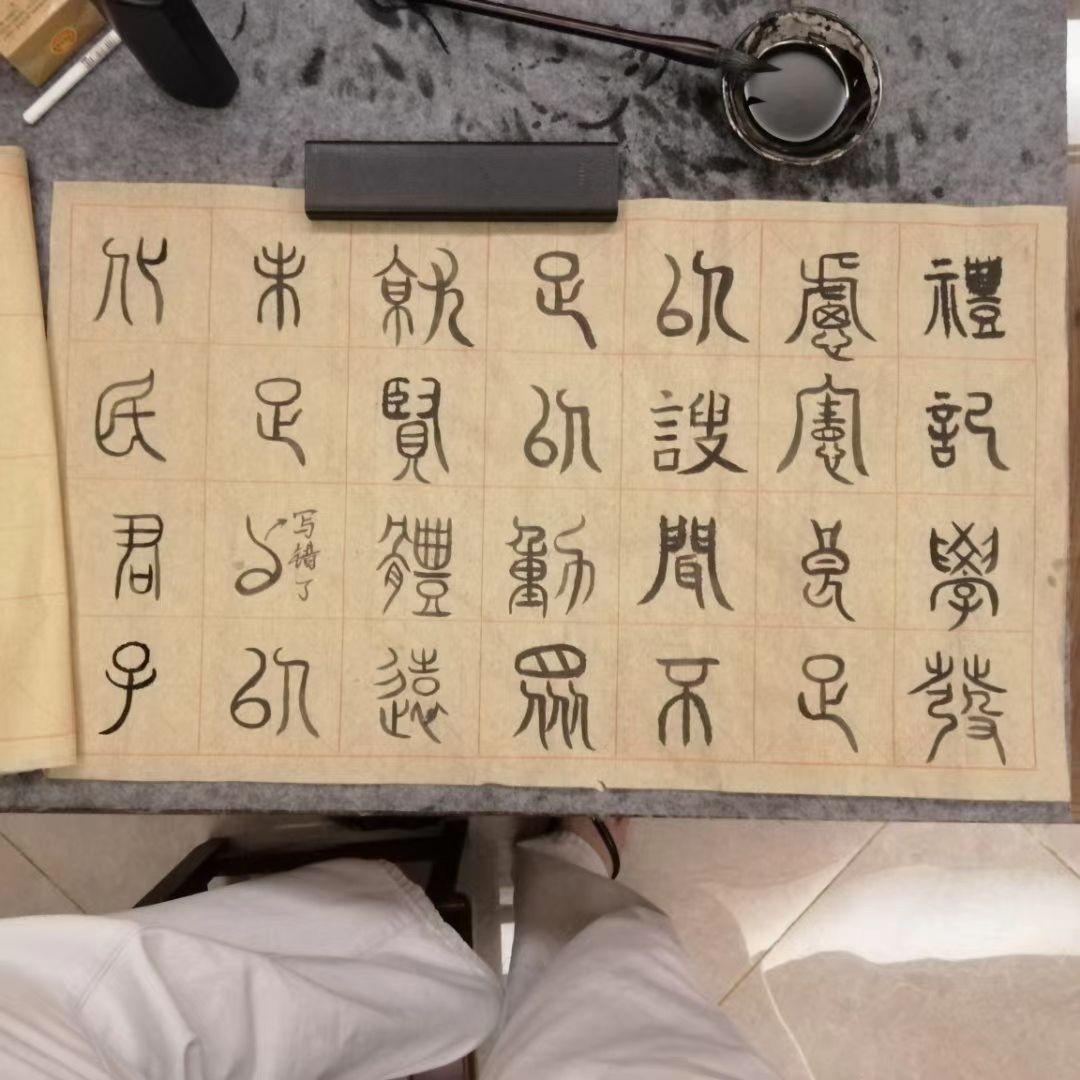 禮記學發
慮憲良足
以謏聞不
足以動眾
就賢體遠
未足
写错了
以
化民君子